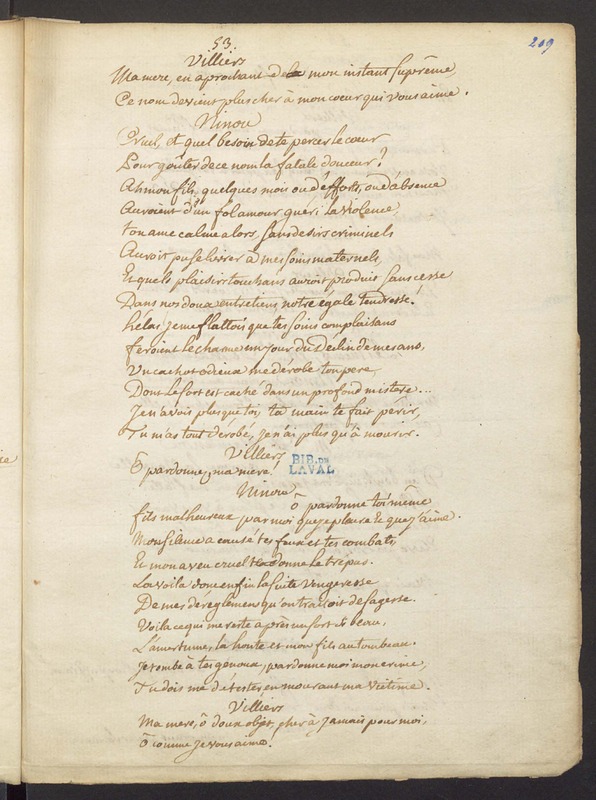 53.
209
Villiers
Ma mere, en aprochant de mon instant suprême,
Ce nom devient plus cher à mon coeur qui vous aime.
Ninon
Cruel, et quel besoin de te percer le coeur
Pour goûter de ce nom la fatale douceur?
Ah mon fils, quelques mois ou d'efforts, ou d'absence
Auroient d'un fol amour guéri la violence,
ton ame calme alors, sans desirs criminels
Auroit pu se livrer à mes soins maternels,
Et quels plaisirs touchans auroit produit sans cesse
Dans nos doux entretiens notre égale tendresse!
hélas je me flattois que tes soins complaisans
feroient le charme un jour du Déclin de mes ans,
Un cachot odieux me dérobe ton pere,
Dont le sort est caché dans un profond mistere...
Je n'avois plus que toi, ta main te fait périr,
Tu m'as tout dérobé, je n'ai plus qu'à mourir.
Villiers
Ô pardonnez, ma mere!
BIB. DE
LAVAL
Ninon
ô pardonne toi même
fils malheureux par moi que je pleure et que j'aime.
Mon silence a causé tes feux et tes combats,
Et mon aveu cruel te donne le trepas.
La voila donc enfin la suite vengeresse
De mes déréglemens qu'on traitoit de sagesse.
Voila ce qui me reste après un sort si beau,
L'amertume, la honte et mon fils au tombeau.
Je tombe à tes genoux, pardonne moi mon crime,
Tu dois me détester en mourant ma victime.
Villiers
Ma mere, ô doux objet, cher à jamais pour moi.
Ô comme je vous aime.